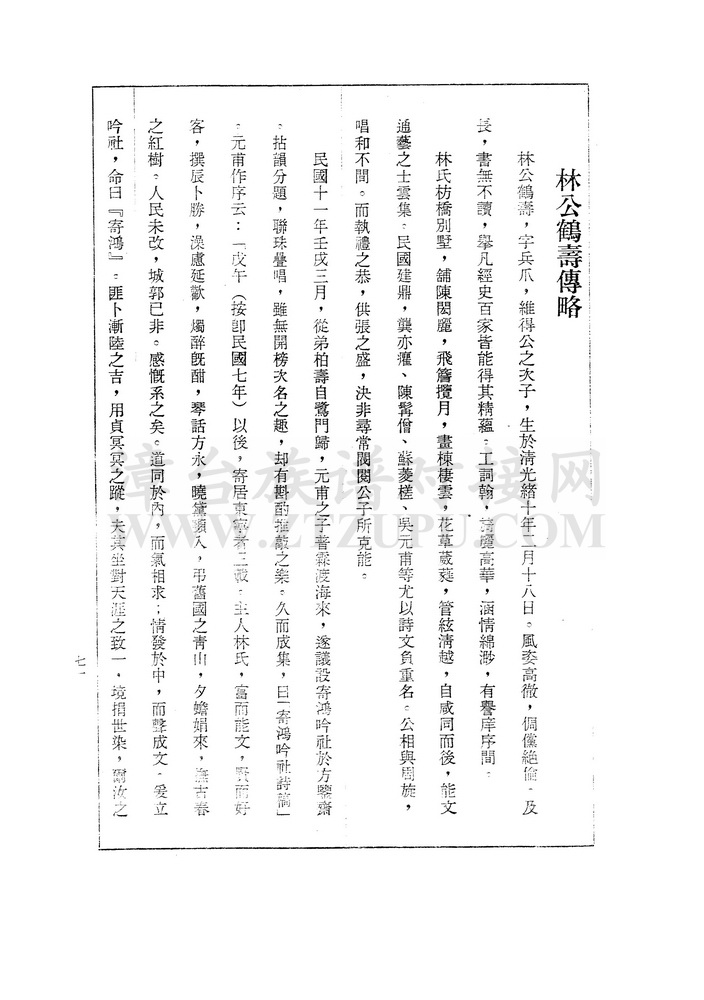 林公鶴壽傳略
林公鶴壽，字兵爪，維得公之次子，生於淸光緒十年二月十八日。風姿高徹，倜儻絕倫。及
長，書無不讀，舉凡經史百家皆能得其精蘊。工詞翰，高華，涵情綿渺，有譽庠序間。
林氏枋橋別墅，舖陳閎麗，飛簷攬月，畫棟棲雲，花草葳蕤，管絃淸越，自咸同而後，能文
通藝之士雲集。民國建鼎，龔亦癯、陳髯僧、蘇菱槎、吳元甫等尤以詩文負重名。公相與周旋，
唱和不間。而執禮之恭，供張之盛，決非尋常閥閱公子所克能。
民國十一年壬戌三月，從弟柏壽自鷺門歸，元甫之子普霖渡海來，遂議設寄鴻吟社於方鑒齋
。拈韻分題，聯珠疊唱，雖無開榜次名之趣，却有斟酌推敲之樂。久而成集，曰「寄鴻吟社詩篇」
。元甫作序云：「戊午（按卽民國七年）以後，寄居東寧者三載。主人林氏，富而能文，賢而好
客，撰辰卜勝，澡慮延歡，燭醉旣酣，琴話方永，曉黛顰入，弔舊國之靑山，夕蟾娟來，撫古春
之紅樹。人民未改，城郭已非。感慨系之矣。道同於內，而氣相求；情發於中，而聲成文。爰立
吟社，命曰『寄鴻』。匪卜漸陸之吉，用貞冥冥之蹤，夫其坐對天涯之致一，境捐世染，爾汝之
七一
章台族谱对接网
WWW.ZTZUPU.COM